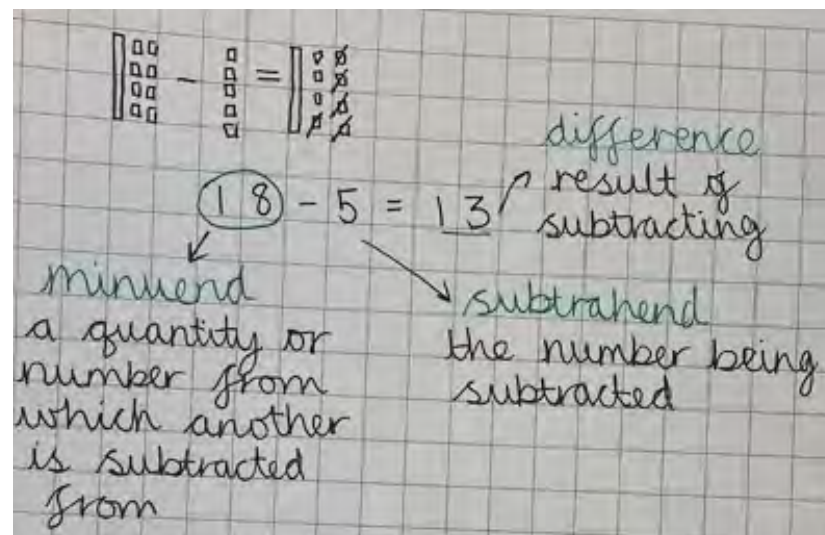 18 - 5 = 13
difference
result of
subtracting
minuend
a quantity or
number from
which another
is subtracted
from
subtrahend
the number being
subtracted